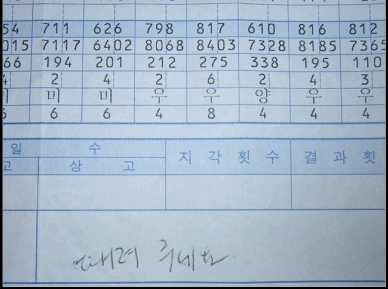 54 711 626 798 817 610 816 812
015 7117 6402 8068 8403 7328 8185 7365
66 194 201 212 275 338 195 110
4 2 4 2 6 2 4 3
미 미 우 우 양 우 우
6 6 4 8 4 4 4
일 수
고 상 고 지각횟수 결과횟
때려 주세요